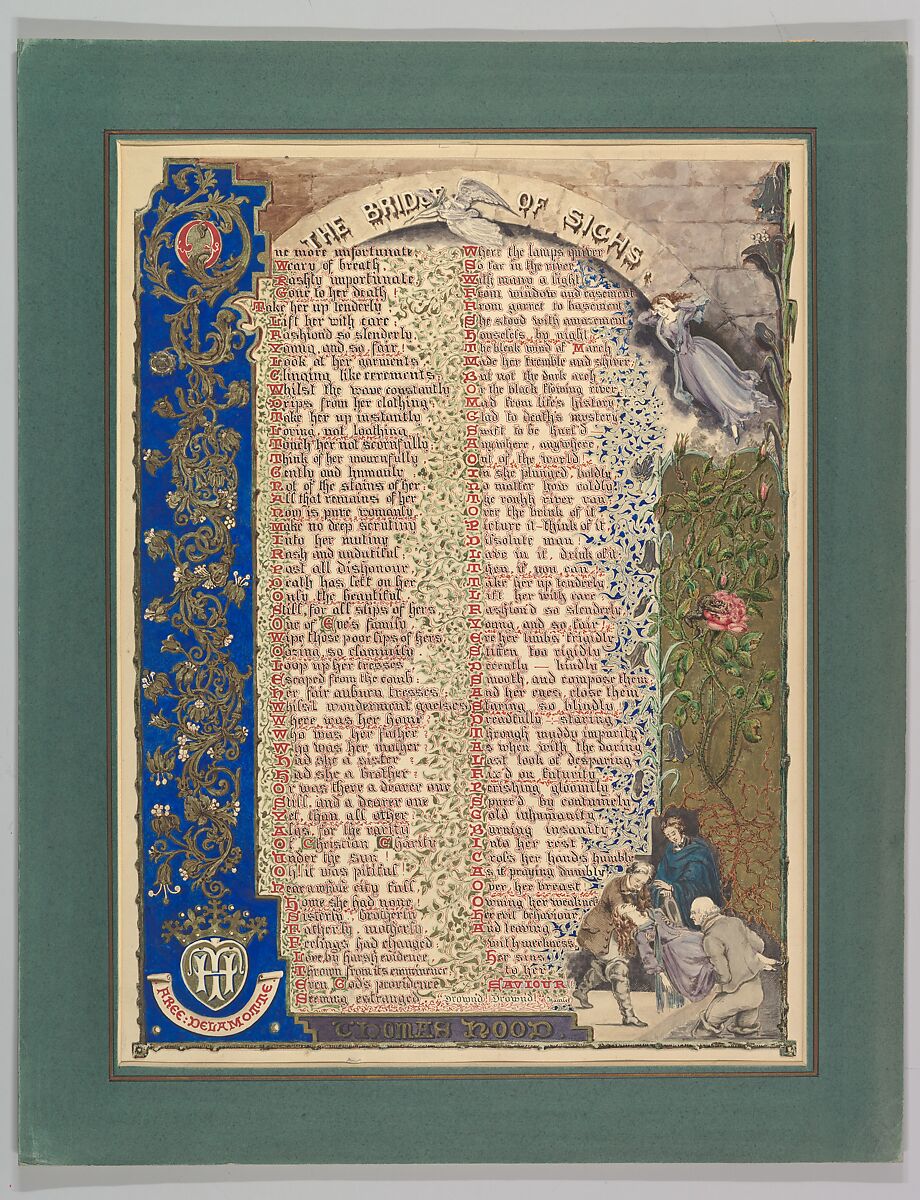 THE BRIDGE OF SIGHS.
One more unfortunate,
Weary of breath,
Rashly importunate
Gone to her death!
Take her up tenderly
Lift her with care:
Fashiond so slenderly
Young, and so fair!
Look at her garments
Clinging like cerements:
Whilst the wave constantly
Drips from her clothing
Take her up instantly
Loving, not loathing
Touch her not scornfully
Think of her mournfully
Gently and humanly
Not of the stains of her
All that remains of her
Now is pure womanly
Make no deep scrutiny
Into her mutiny
Rash and undutiful,
Past all dishonour,
Death has left on her
Only the beautiful
Still, for all slips of hers
One of Eve's family
Wipe those poor lips of hers
Oozing, so clammily
Loop up her tresses
Escaped from the comb:
Her fair auburn tresses;
Whilst wonderment guesses
Where was her home?
Who was her father?
Who was her mother?
Had she a sister?
Had she a brother?
Or was there a dearer one
Still, and a dearer one
Yet, than all other
Alas, for the rarity
Of Christian Charity
Under the sun!
Oh! it was pitiful!
Near a whole city full,
Home she had none!
Sisterly, brotherly
Fatherly, motherly
Feelings had changed
Love, by harsh evidence
Thrown from its eminence
Even God's providence
Seeming estranged
Where the lamps quiver
So far in the river,
With many a light
From window and casement
From garret to basement
She stood with amazement
Houseless, by night.
The bleak wind of March
Made her tremble and shiver
But not the dark arch
Or the black flowing river
Mad from life's history
Glad to death's mystery
Swift to be hurl'd —
Anywhere, anywhere
Out of the world!
In she plunged, boldly
No matter how coldly
The rough river ran
Over the brink of it
Picture it – think of it
Dissolute man,
Lave in it, drink of it
Then, if you can
Take her up tenderly
Lift her with care
Fashion'd so slenderly
Young, and so fair!
Ere her limbs frigidly
Stiffen too rigidly
Decently — kindly
Smooth, and compose them
And her eyes, close them
Staring so blindly
Dreadfully staring,
Through muddy impurity
As when with the daring
Last look of despairing
Fix'd on futurity
Perishing gloomily
Spurr'd by contumely
Cold inhumanity
Burning insanity
Into her rest
Cross her hands humbly
As if praying dumbly
Over her breast
Owning her weakness
Her evil behaviour
And leaving
with meekness,
Her sins
to her
SAVIOUR
Drown'd! Drown'd! Hamlet
THOMAS HOOD
FREE: DELAMOTTE